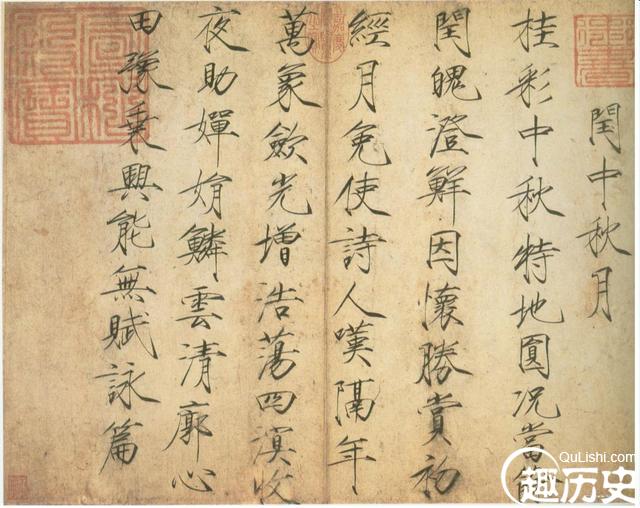 閏中秋月
桂彩中秋特地圓況當餘
閏魄澄鮮因懷勝賞初
經月免使詩人嘆隔年
萬象歛光增浩蕩四溟收
夜助嬋娟鱗雲清廓心
田豫乘興能無賦詠篇
QuLishi.com
趣历史